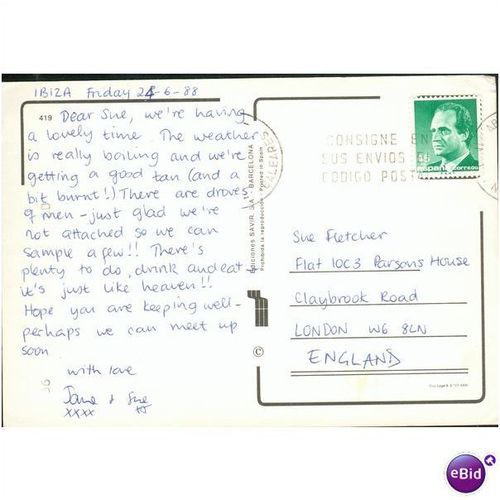 IBIZA Friday 24-6-88
419 Dear Sue, we're having
a lovely time. The weather
is really boiling and we're
getting a good tan (and a
bit burnt!) There are droves
of men - just glad we're
not attached so we can
sample a few!! There's
plenty to do, drink and eat
it's just like heaven!!
Hope you are keeping well-
perhaps we can meet up
soon
with love
Jane & Sue
xxxx
EDICIONES SAVIR, S.A. - BARCELONA
Prohibida la reproducción - Printed in Spain
BALEARES
CONSIGNE EN
SUS ENVIOS
CODIGO POSTA
España correos
Sue Fletcher
Flat 10C3 Parsons House
Claybrook Road
LONDON W6 8LN
ENGLAND
©
eBid